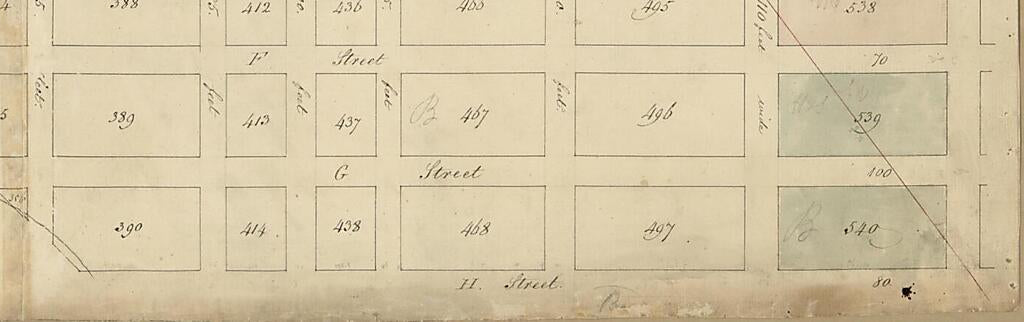 388 412 436 466 495 538
F Street 70
feet. feet feet feet feet. 110 feet wide
389 413 437 B 467 496 539
G Street 100
390 414 438 468 497 B 540
H. Street. 80